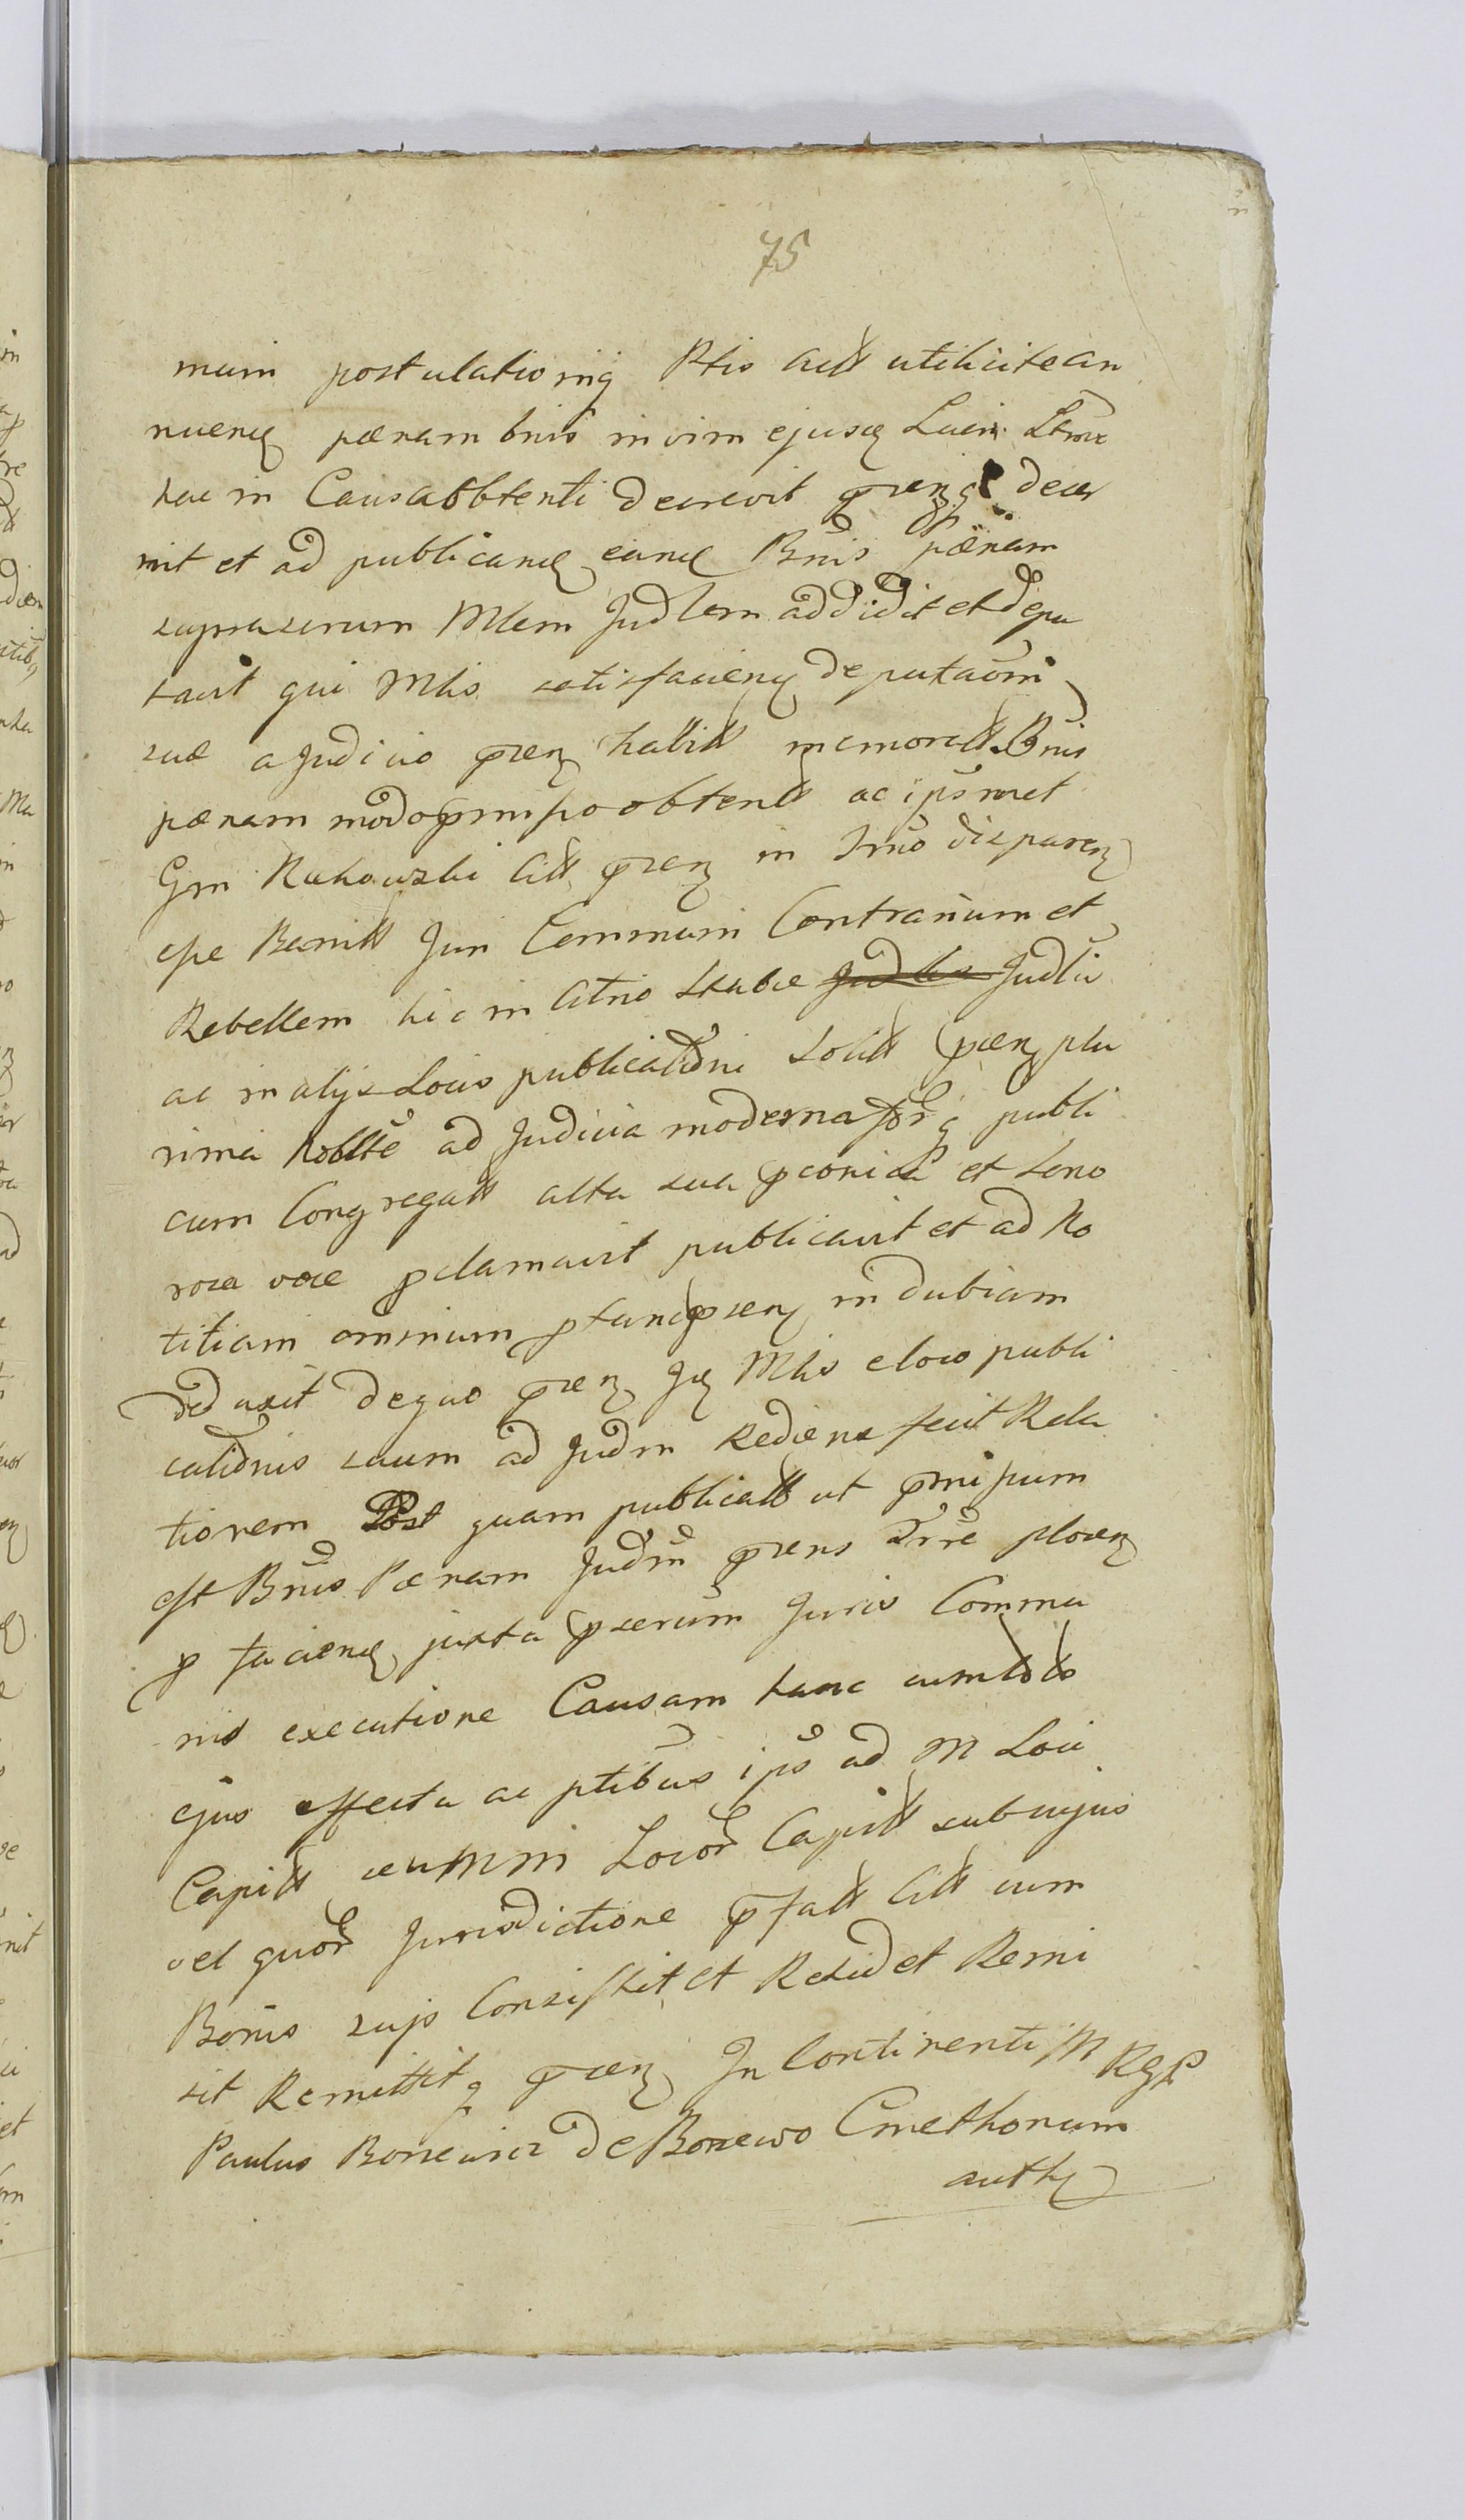 75
muni postulationiq Ptis Actt utilicitean
nuend pænam bnis in vim ejusd Lucri
hac in Causa obtenti decrevit prnsq decer
nit et ad publicand eand Bnis pænam
suprascrum Mlem Judlem addidit et depu
tavit qui Mlis satisfaciens deputaoni
suæ a Judicio præns habitt memoratt Bnis
pænam modo pmisso obtentt ac ipsmet
Gm Rakowski Citt præns in Trno disparen
esse Bannitt Juri Communi Contrarium et
Rebellem hic in Atrio Stubæ Judlis
ac in alijs Locis publicationi Solitt præns plu
rima Noblte ad Judicia moderna publi
cum Congregatt alta sua pconica et Sono
rosa voce pclamavit publicavit et ad No
titiam omnium ptunc præsen indubiam
deduxit de quo præns Jd Mlis e loco publi
cationis suum ad Judm Rediens fecit Rela
tionem Post quam publicatt ut pmissum
est Bnis Pænam Judm præns Trre plocen
p faciend juxta pscrum Juris Commu
nis executione Causam hanc cum toto
ejus effectu ac ptibus ips ad M Loci
Capitt seu MM Locor Capitt sub cujus
vel quor Jurisdictione pfatt Citt cum
Bonis suis Consistit et Residet Remi
sit Remittitq præns In Continenti M RgP
Paulus Boniewicz de Boniewo Cmethonum
auth